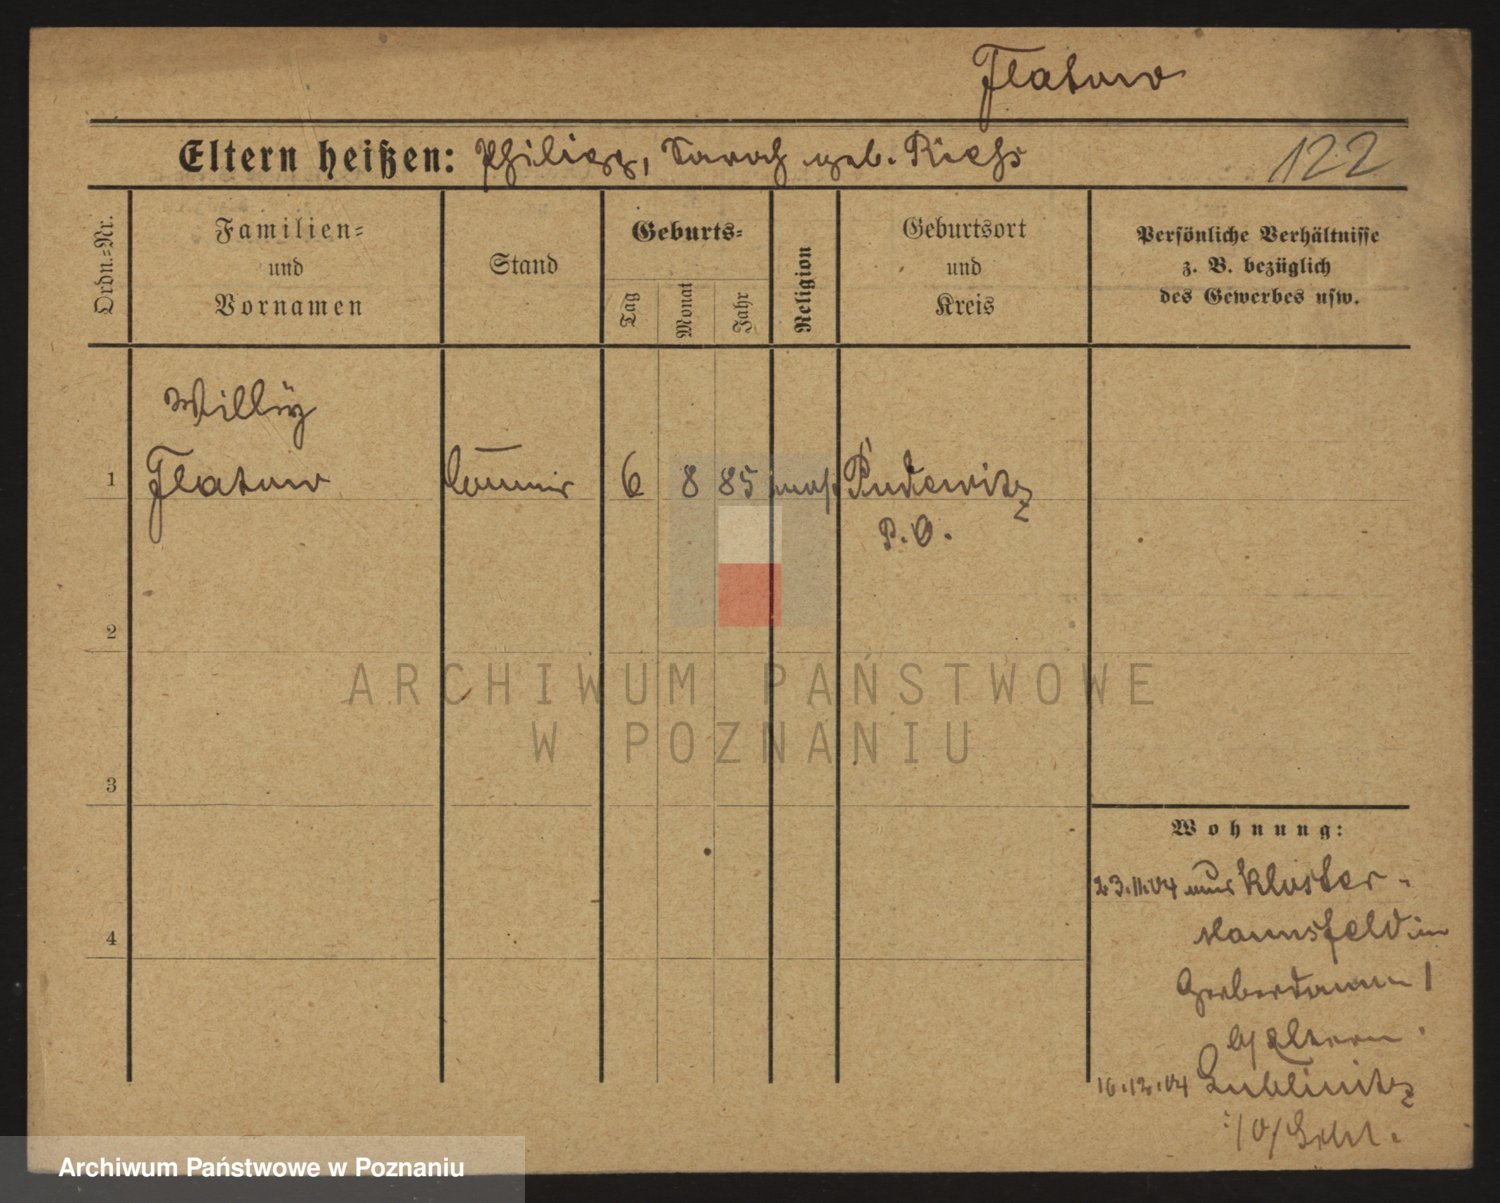 Flatow
Eltern heißen: Philipp, Sarah geb. Riess
122
Ordn.=Nr.
Familien=
und
Vornamen
Stand
Geburts=
Tag
Monat
Jahr
Religion
Geburtsort
und
Kreis
Persönliche Verhältnisse
z. B. bezüglich
des Gewerbes usw.
Willÿ
1 Flatow Commis 6 8 85 mos. Pudewitz
P. O.
2
3
4
Wohnung:
23.11.04 Kloster-
Mannsfeld in
Gerberdamm 1
b/ Eltern.
16.12.04 Lublinitz
O/Schl.
ARCHIWUM PAŃSTWOWE
W POZNANIU
Archiwum Państwowe w Poznaniu